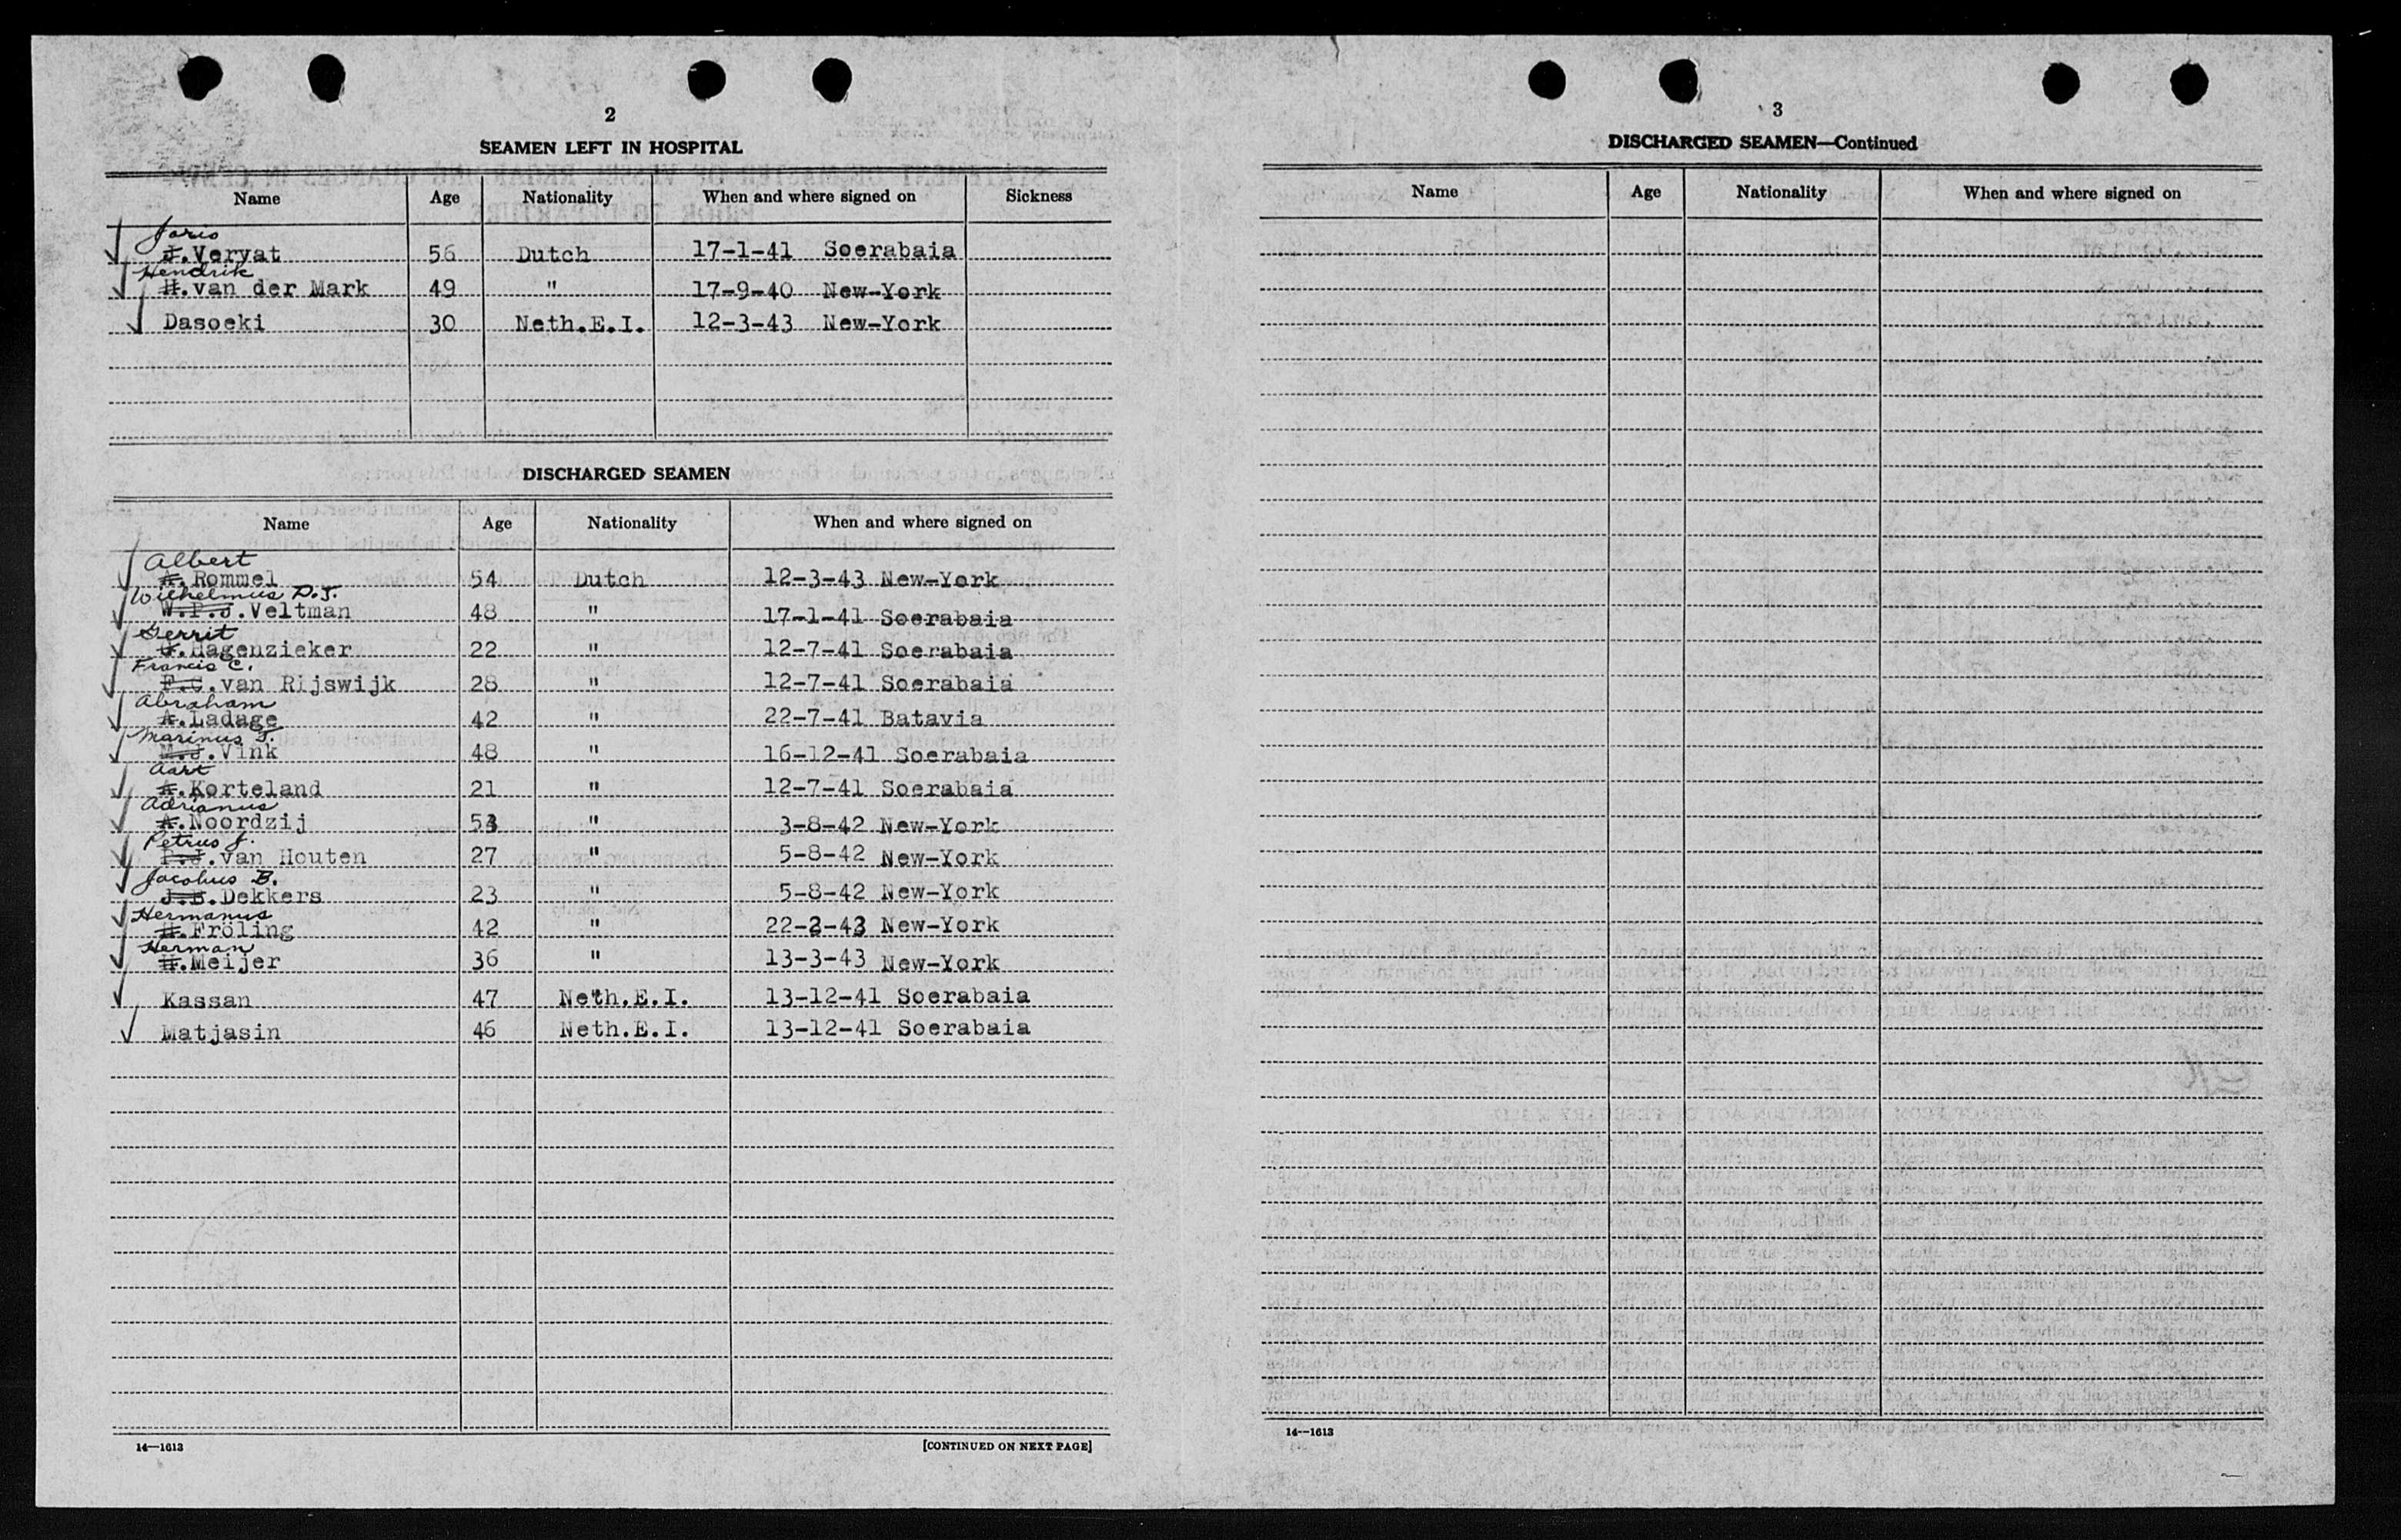 2
SEAMEN LEFT IN HOSPITAL
Name Age Nationality When and where signed on Sickness
Joris
J.Veryat 56 Dutch 17-1-41 Soerabaia
Hendrik
H.van der Mark 49 " 17-9-40 New-York
Dasoeki 30 Neth.E.I. 12-3-43 New-York
DISCHARGED SEAMEN
Name Age Nationality When and where signed on
Albert
A.Rommel 54 Dutch 12-3-43 New-York
Wilhelmus P.J.
W.P.J.Veltman 48 " 17-1-41 Soerabaia
Gerrit
G.Hagenzieker 22 " 12-7-41 Soerabaia
Francis C.
F.C.van Rijswijk 28 " 12-7-41 Soerabaia
Abraham
A.Ladage 42 " 22-7-41 Batavia
Marinus J.
M.J.Vink 48 " 16-12-41 Soerabaia
Aart
A.Korteland 21 " 12-7-41 Soerabaia
Adrianus
A.Noordzij 53 " 3-8-42 New-York
Petrus J.
P.J.van Houten 27 " 5-8-42 New-York
Jacobus B.
J.B.Dekkers 23 " 5-8-42 New-York
Hermanus
H.Fröling 42 " 22-2-43 New-York
Herman
H.Meijer 36 " 13-3-43 New-York
Kassan 47 Neth.E.I. 13-12-41 Soerabaia
Matjasin 46 Neth.E.I. 13-12-41 Soerabaia
14—1613 [CONTINUED ON NEXT PAGE]
3
DISCHARGED SEAMEN—Continued
Name Age Nationality When and where signed on
14—1613